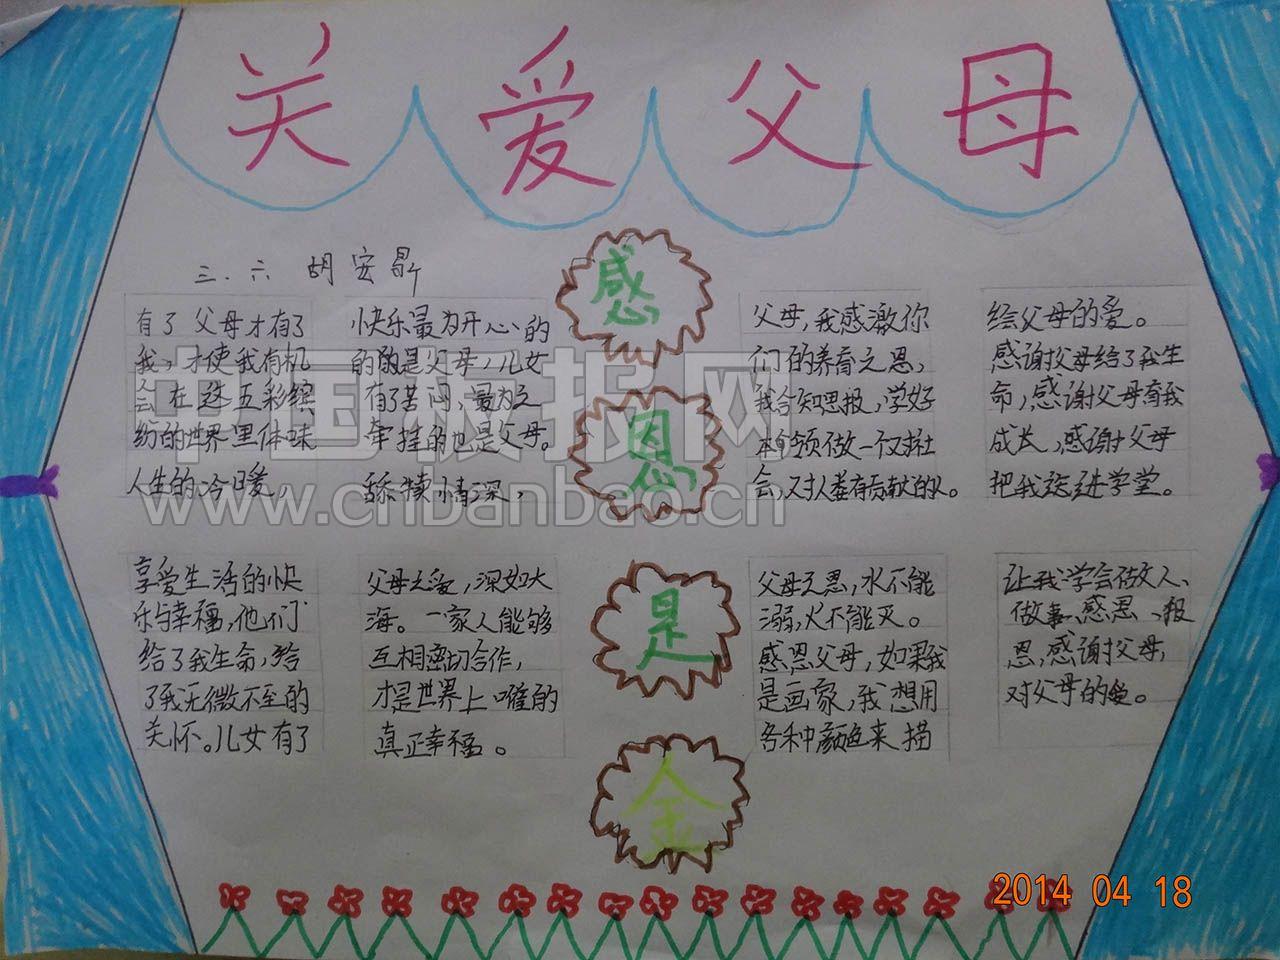 关爱父母
三.六 胡宏昂
感
恩
是
金
有了父母才有了
我，才使我有机
会在这五彩缤
纷的世界里体味
人生的冷暖，
享爱生活的快
乐与幸福，他们
给了我生命，给
了我无微不至的
关怀。儿女有了
快乐最为开心的
的确是父母，儿女
有了苦闷，最为之
牵挂的也是父母。
舔犊情深，
父母之爱，深如大
海。一家人能够
互相密切合作，
才是世界上唯的
真正幸福。
父母，我感激你
们的养育之恩，
我会知恩报，学好
本领做一个对社
会，对人类有贡献的人。
父母之恩，水不能
溺，火不能灭。
感恩父母，如果我
是画家，我想用
各种颜色来描
绘父母的爱。
感谢父母给了我生
命，感谢父母育我
成长，感谢父母
把我送进学堂。
让我学会做人、
做事、感恩、报
恩，感谢父母，
对父母的爱。
中国板报网
www.cnbanbao.cn
2014 04 18